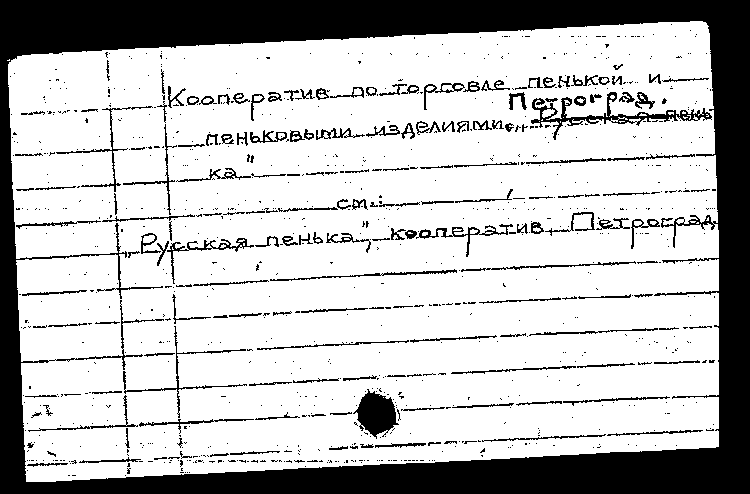 Кооператив по торговле пенькой и
Петроград.
пеньковыми изделиями. „Русская пень
ка"
см.:
„Русская пенька", кооператив, Петроград